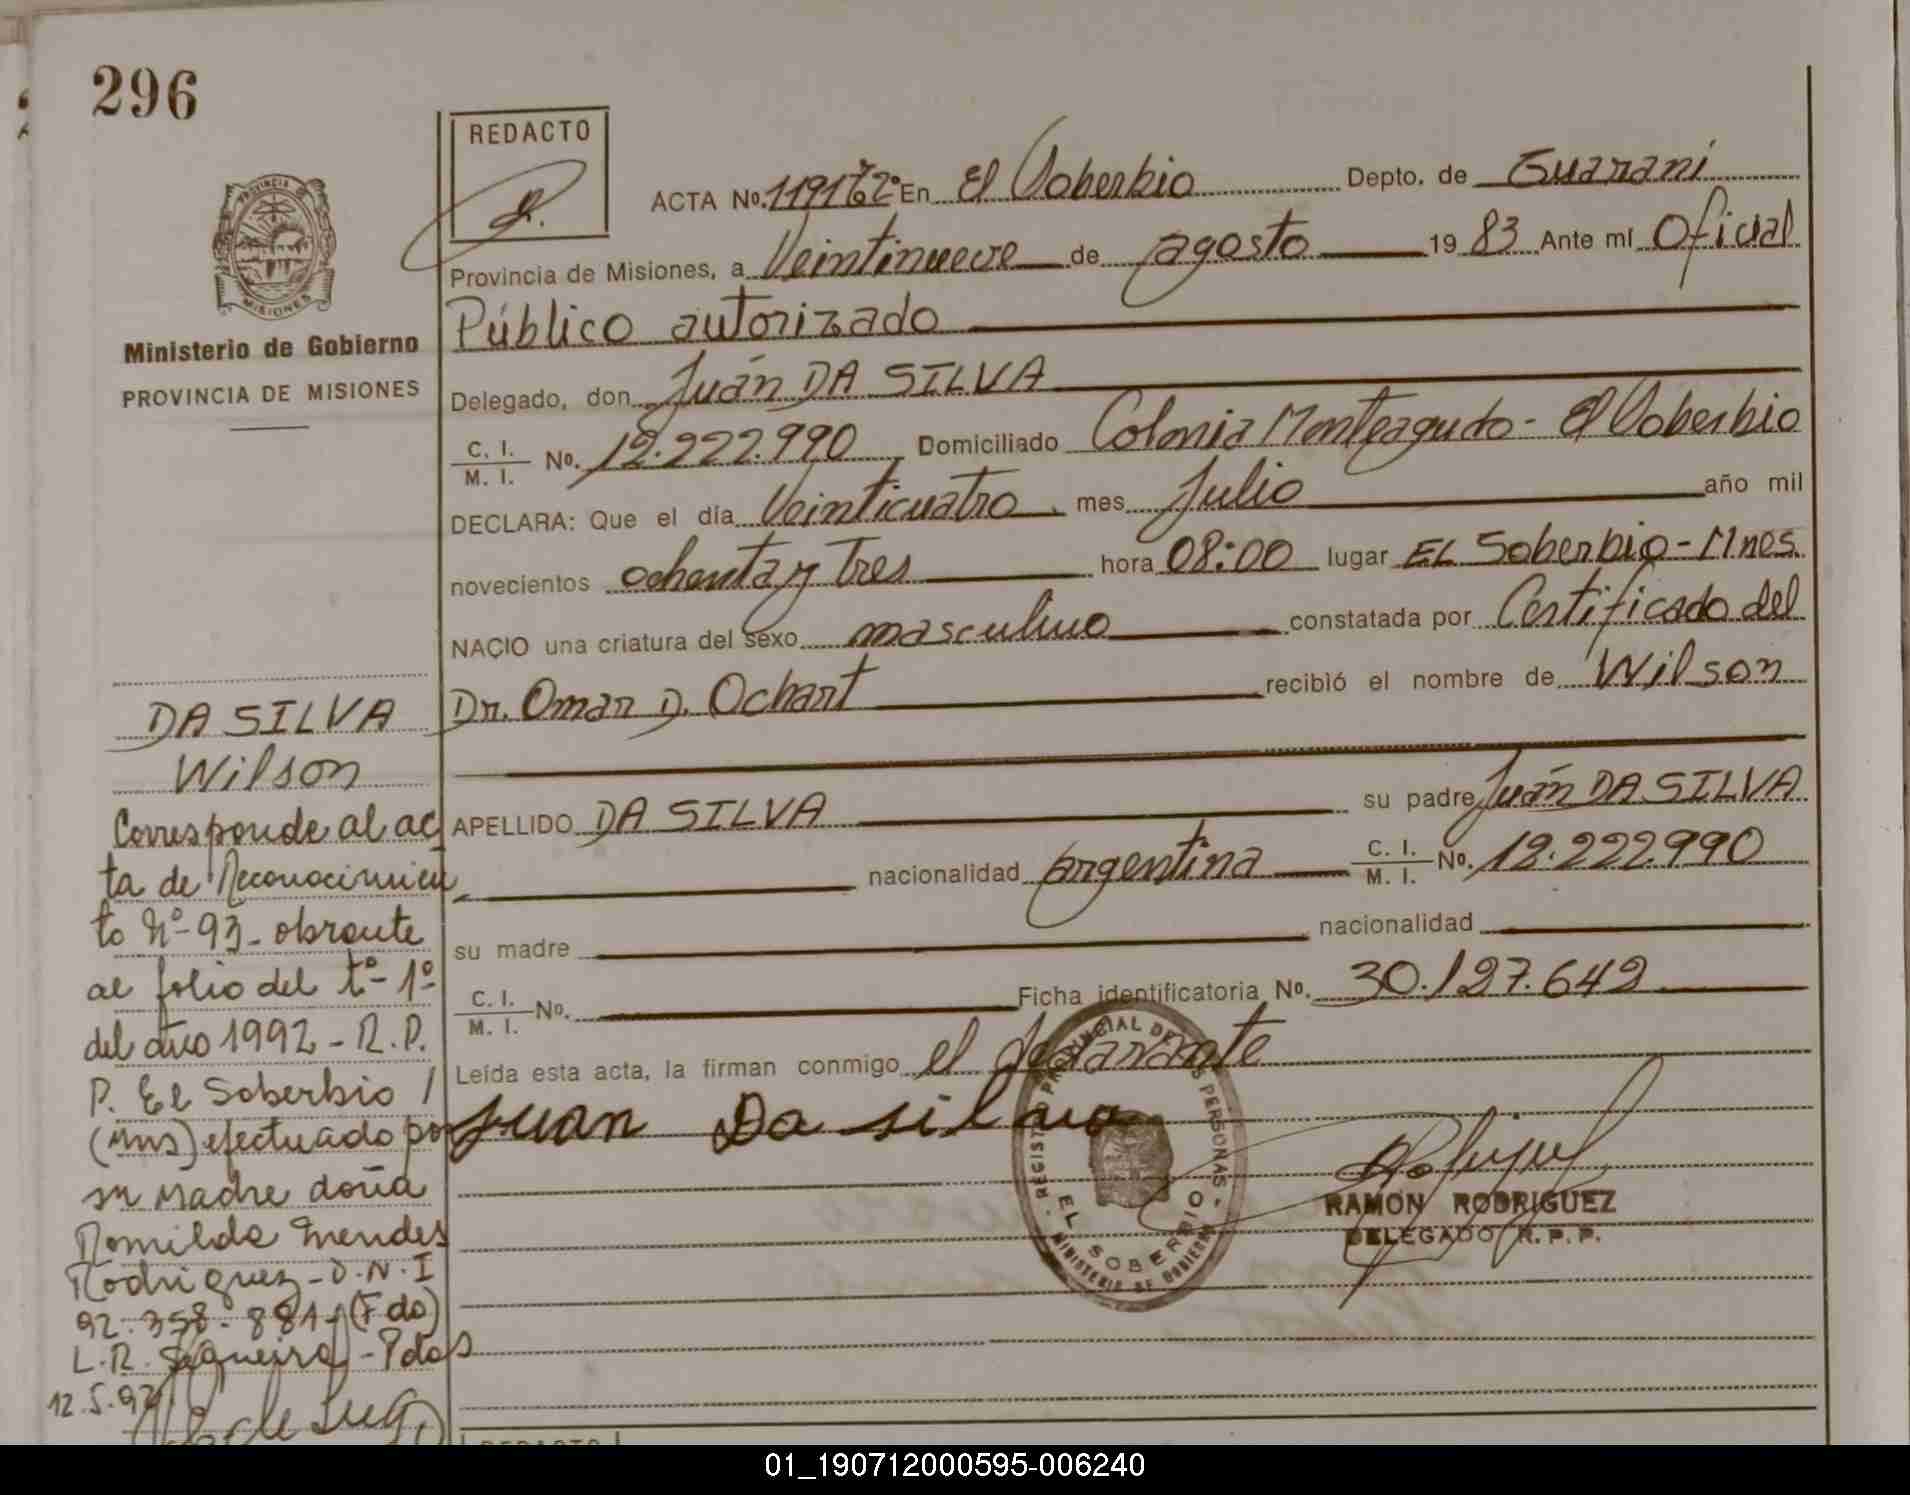 296
REDACTO
PROVINCIA DE
MISIONES
Ministerio de Gobierno
PROVINCIA DE MISIONES
ACTA No. En El Soberbio Depto. de Guaraní
Provincia de Misiones, a Veintinueve de agosto 19 83 Ante mí Oficial
Público autorizado
Delegado, don Juán DA SILVA
C. I. / M. I. No. 12.222.990 Domiciliado Colonia Monteagudo - El Soberbio
DECLARA: Que el día Veinticuatro mes Julio año mil
novecientos ochenta y Tres hora 08:00 lugar EL Soberbio - Mnes.
NACIO una criatura del sexo masculino constatada por Certificado del
Dr. Omar D. Ochart recibió el nombre de Wilson
APELLIDO DA SILVA su padre Juán DA SILVA
nacionalidad argentina C. I. / M. I. No. 12.222.990
su madre nacionalidad
C. I. / M. I. No. Ficha identificatoria No. 30.127.642
Leída esta acta, la firman conmigo el declarante
Juan Da silva
REGISTRO PROVINCIAL DE LAS PERSONAS
EL SOBERBIO
MINISTERIO DE GOBIERNO
RAMON RODRIGUEZ
DELEGADO R. P. P.
DA SILVA
Wilson
Corresponde al ac
ta de Reconocimien
to Nº 93 - obrante
al folio del tº - 1º
del año 1992 - R. P.
P. El Soberbio /
(Mns) efectuado por
su madre doña
Romilda Mendes
Rodriguez - D.N.I
92.358.881 - (Fdo)
L.R. Sequeira - Pdas
12.5.92
REDACTO
01_190712000595-006240